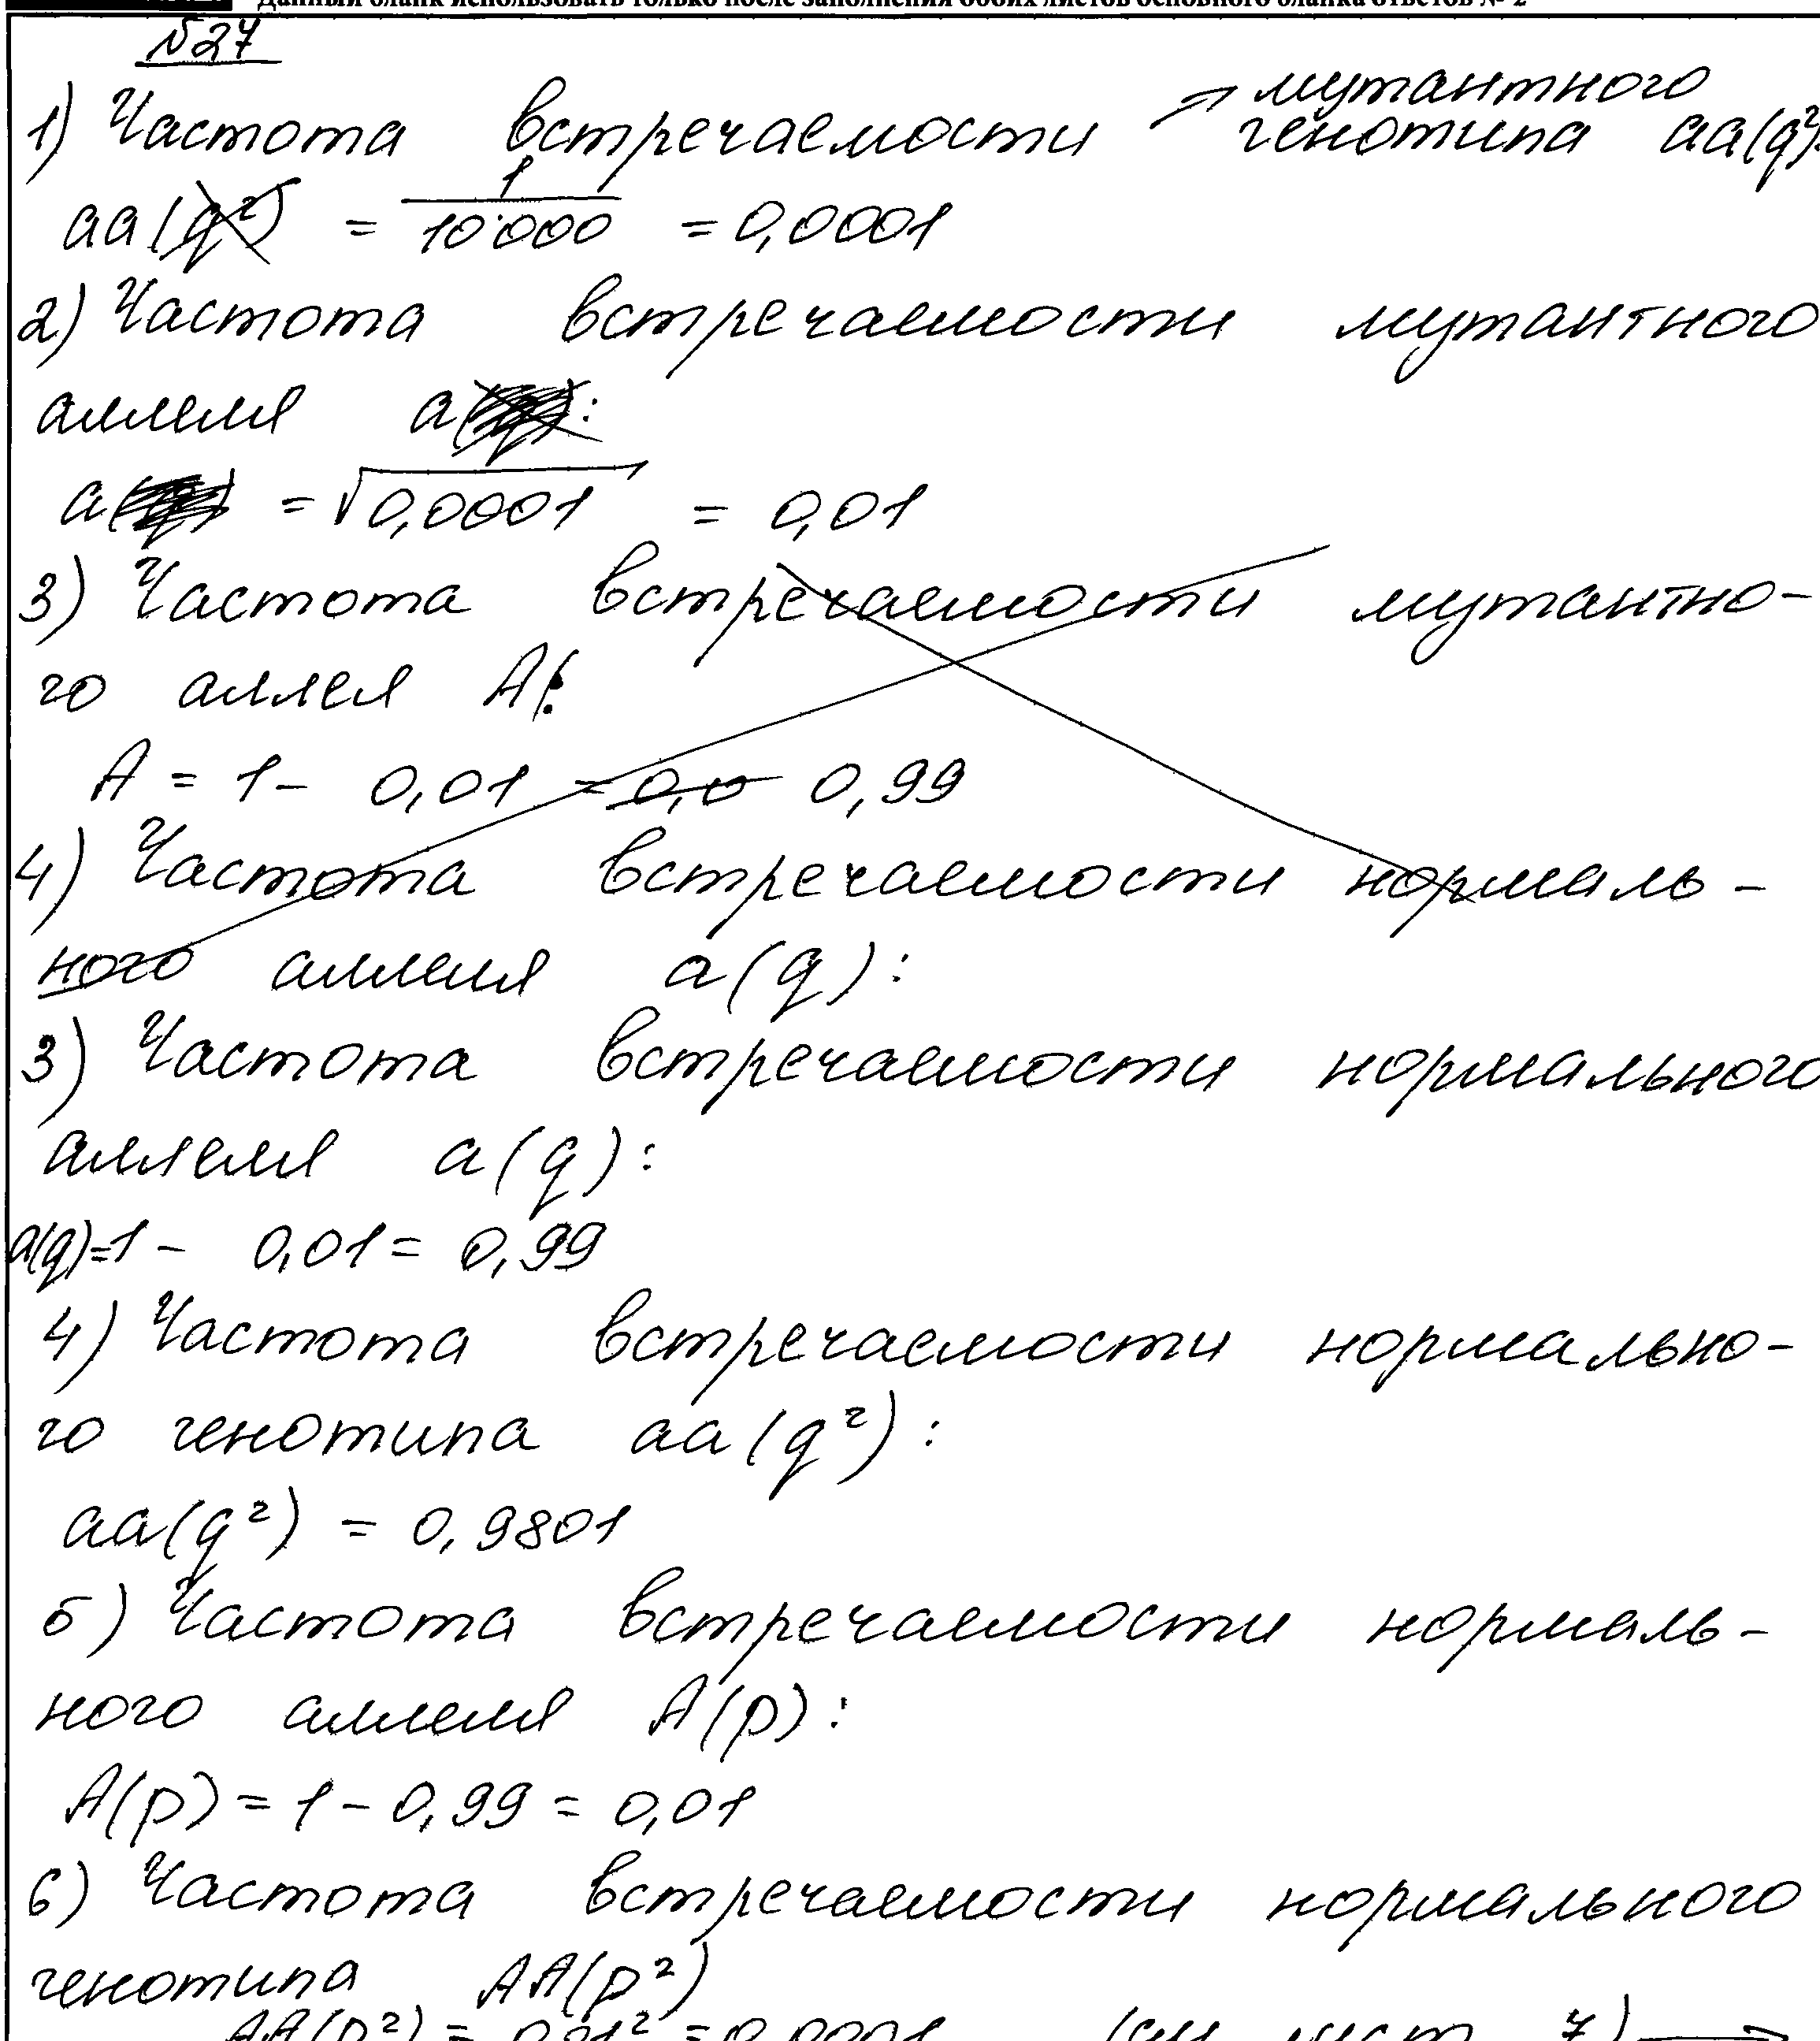 Данный бланк использовать только после заполнения обоих листов основного бланка ответов № 2
№27
1) Частота встречаемости → мутантного
генотипа aa(q²):
aa(q²) = 1/10'000 = 0,0001
2) Частота встречаемости мутантного
аллеля a :
a = √0,0001 = 0,01
3) Частота встречаемости мутантно-
го аллел A:
A = 1 - 0,01 = 0,0 0,99
4) Частота встречаемости нормаль-
ного аллеля a(q):
3) Частота встречаемости нормального
аллеля a(q):
a(q)=1 - 0,01 = 0,99
4) Частота встречаемости нормально-
го генотипа aa(q²):
aa(q²) = 0,9801
5) Частота встречаемости нормаль-
ного аллеля A(p):
A(p) = 1 - 0,99 = 0,01
6) Частота встречаемости нормального
генотипа AA(p²)
AA(p²) = 0,01² = 0,0001 (см лист 7) →